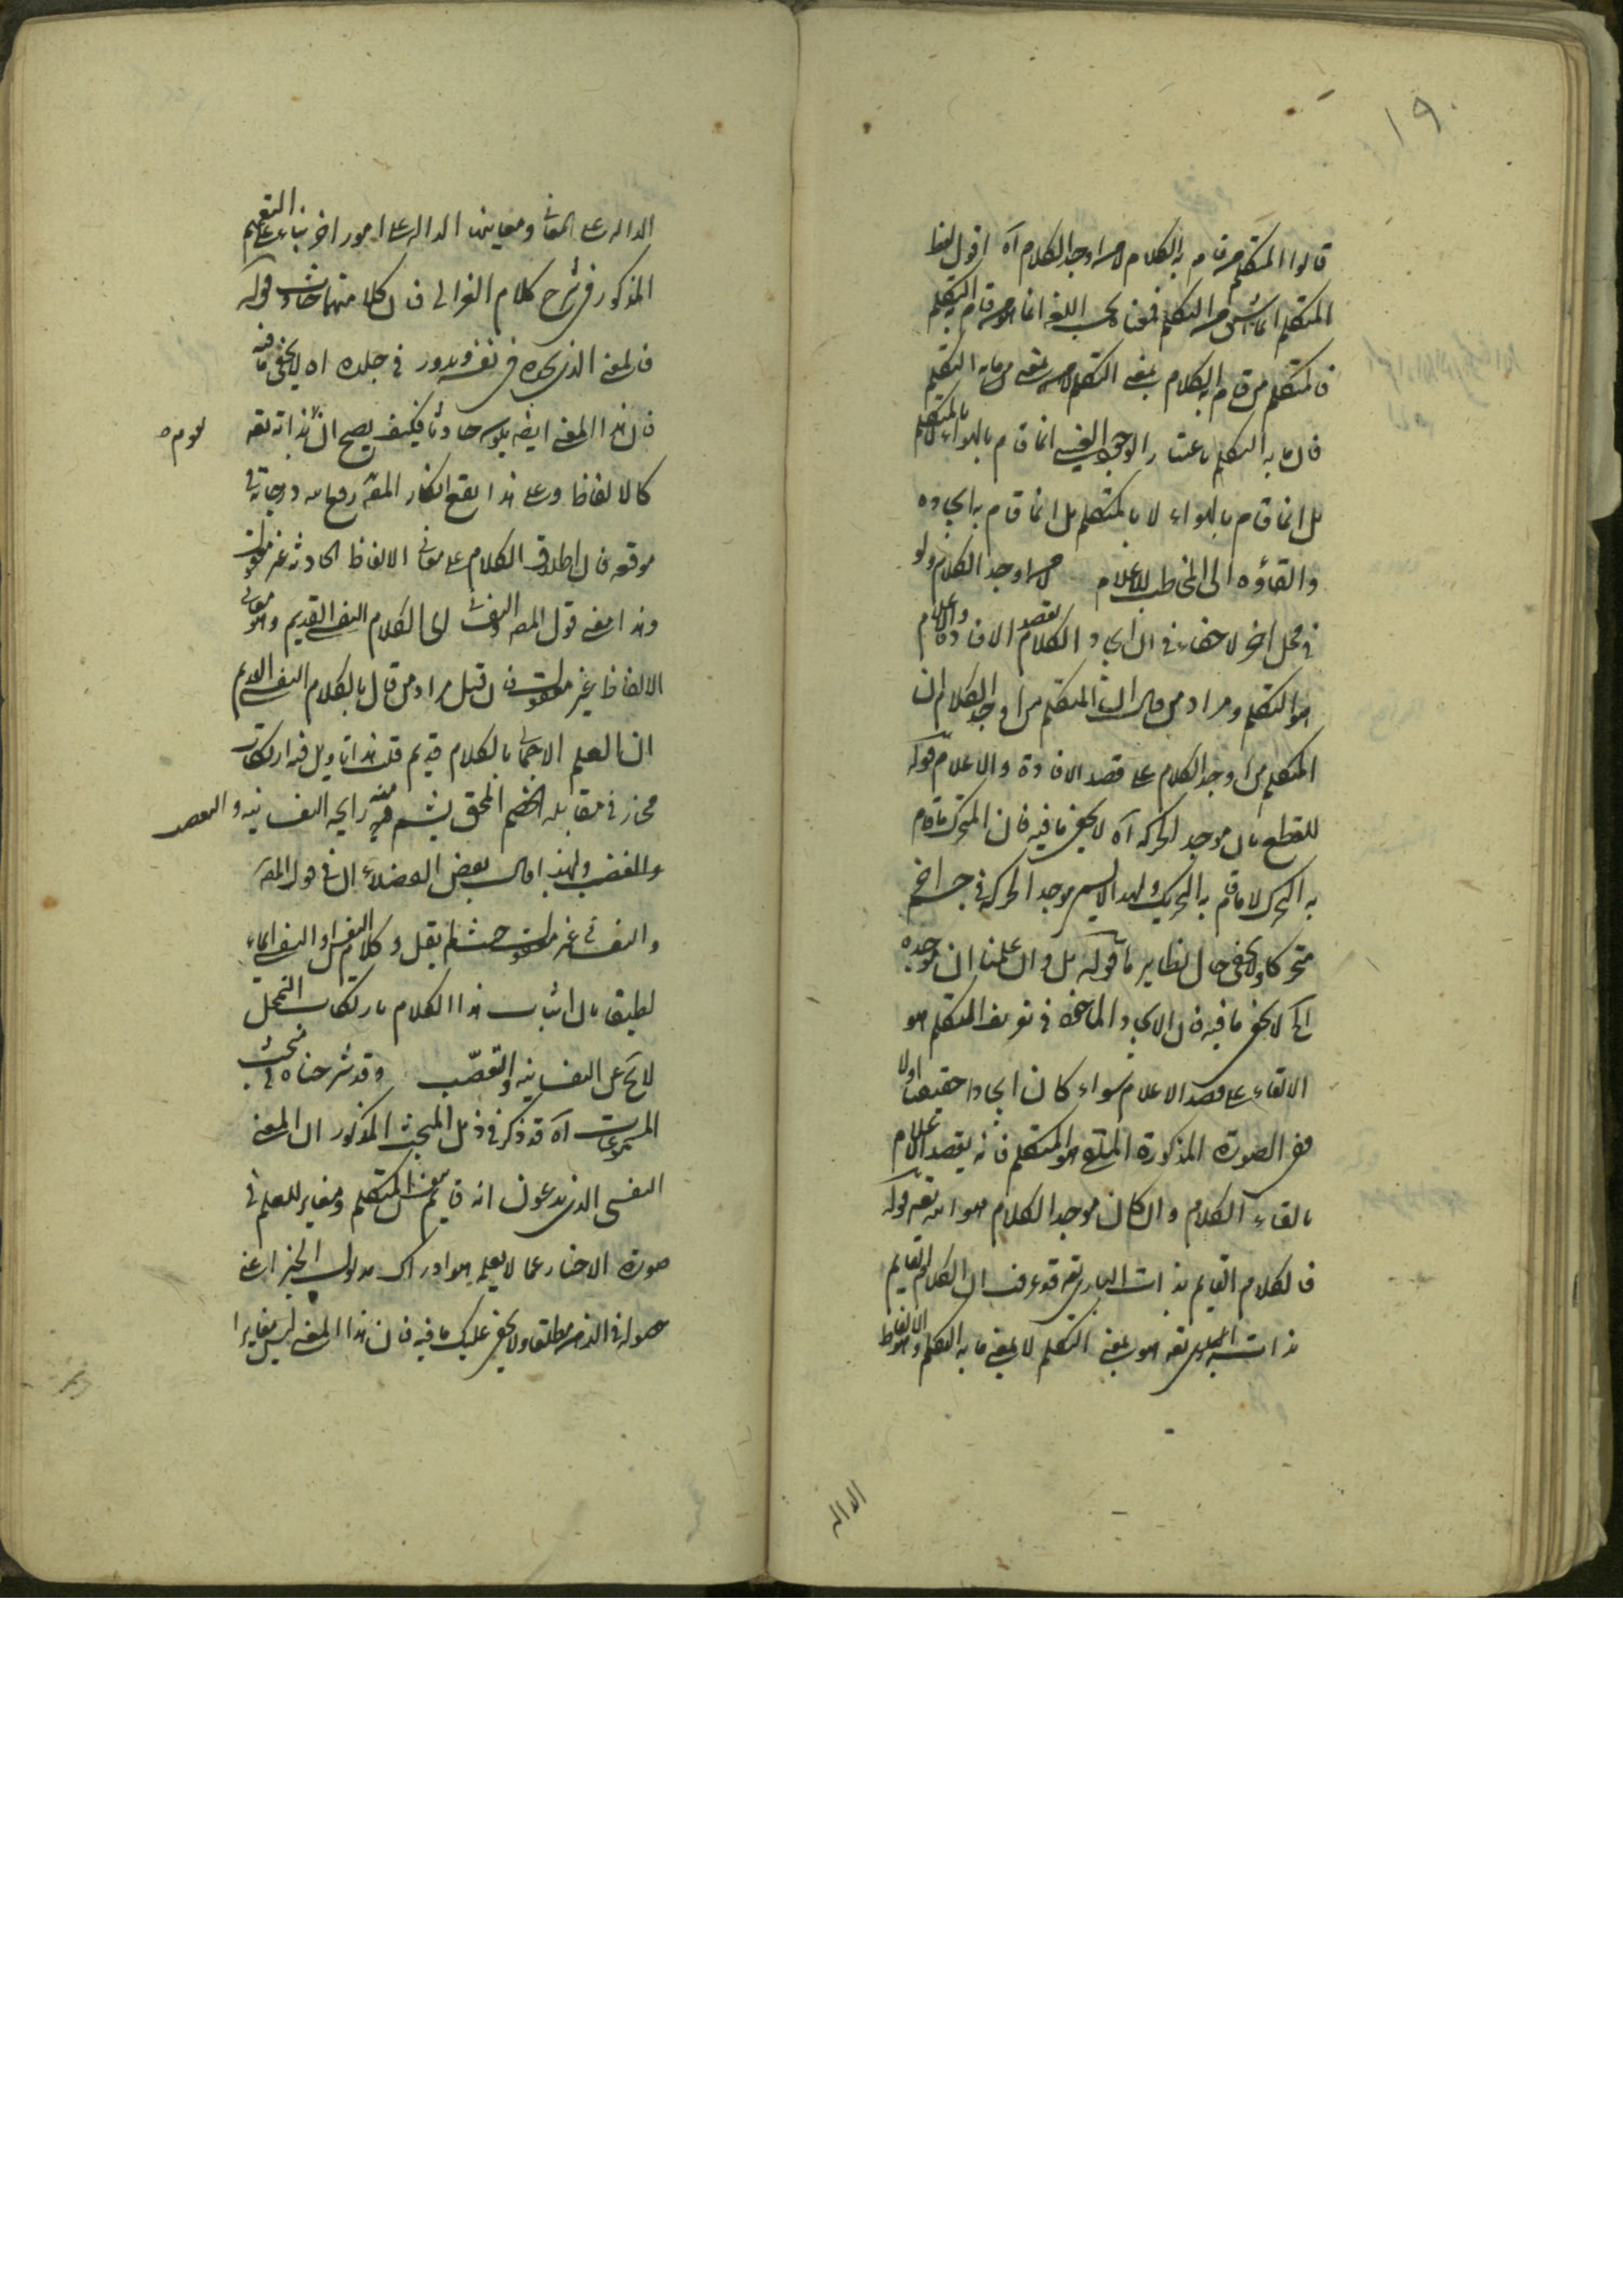 ١٩٠
قالوا المتكلم من قام به الكلام لا من اوجد الكلام آه اقول لفظ
المتكلم انما اشتق من التكلم فمعناه بحسب اللغة انما هو من قام به التكلم
فالمتكلم من قام به الكلام بمعنى التكلم لا من بمعنى ما به التكلم
فان ما به التكلم باعتبار الوجود انما قام بالهواء لا بالمتكلم
بل انما قام بالهواء لا بالمتكلم بل انما قام به ايجاده
والقاؤه الى المخاطب للاعلام لا من اوجد الكلام ولو
في محل اخر لا خفاء في ان ايجاد الكلام بقصد الافادة والاعلام
هو التكلم ومراد من قال ان المتكلم من اوجد الكلام ان
المتكلم من اوجد الكلام على قصد الافادة والاعلام قوله
للقطع بان موجد الحركة آه لا يخفى ما فيه فان المتحرك ما قام
به التحرك لا ما قام به التحريك ولهذا لا يسمى موجد الحركة في جسم اخر
متحركا ولا يخفى حال نظايره قوله بل وان علمنا ان موجده
آه لا يخفى ما فيه فان الايجاد الماخوذ في تعريف المتكلم هو
الالقاء على قصد الاعلام سواء كان ايجادا حقيقيا او لا
ففي الصورة المذكورة المتكلم فانه يقصد الاعلام
بالقاء الكلام وان كان موجد الكلام هو الله تعه قوله
فالكلام القايم بذات الباري تعه قد عرفت ان الكلام القايم
بذات الباري تعه هو بمعنى التكلم لا بمعنى ما به التكلم وهو الالفاظ
الداله
الداله على المعاني ومعاينها الداله على امور اخر بناء على التعميم
المذكور في شرح كلام الغزالي فان كلا منهما حادث قوله
فالمعنى الذي يجده في نفسه ويدور في خلده اه لا يخفى ما فيه
فان هذا المعنى ايضا يكون حادثا فكيف يصح انه بذاته تعه
كالالفاظ وعلى هذا يقع انكار المصه رفع الله درجاته في
موقعه فان اطلاق الكلام على معاني الالفاظ الحادثة غير معقول
وهذا معنى قول المصه والنفساني اي الكلام النفسي القديم وهو معاني
الالفاظ غير معقول فان قيل مراد من قال بالكلام النفسي القديم
ان العلم الاجمالي بالكلام قديم قلت هذا تاويل فيه ارتكاب
مجاز في مقابلة الخصم المحق يشم منه رايحة النفسانيه والتعصب
والغضب ولهذا قال بعض الفضلاء ان في قول المصه
والنفساني غير معقول حيث لم يقل وكلام النفس او النفسي ايماء
لطيفا بان اثبات هذا الكلام بارتكاب التمحل
لا يخ عن النفسانية والتعصّب وقد شرحناه في مبحث
المسموعات آه قد ذكر في ذيل المبحث المذكور ان المعنى
النفسي الذي يدعون انه قايم بنفس المتكلم ومغاير للعلم في
صورة الاخبار عما لا يعلمه هو ادراك مدلول الخبر اعني
حصوله في الذهن مطلقا ولا يخفى عليك ما فيه فان هذا المعنى ليس مغايرا